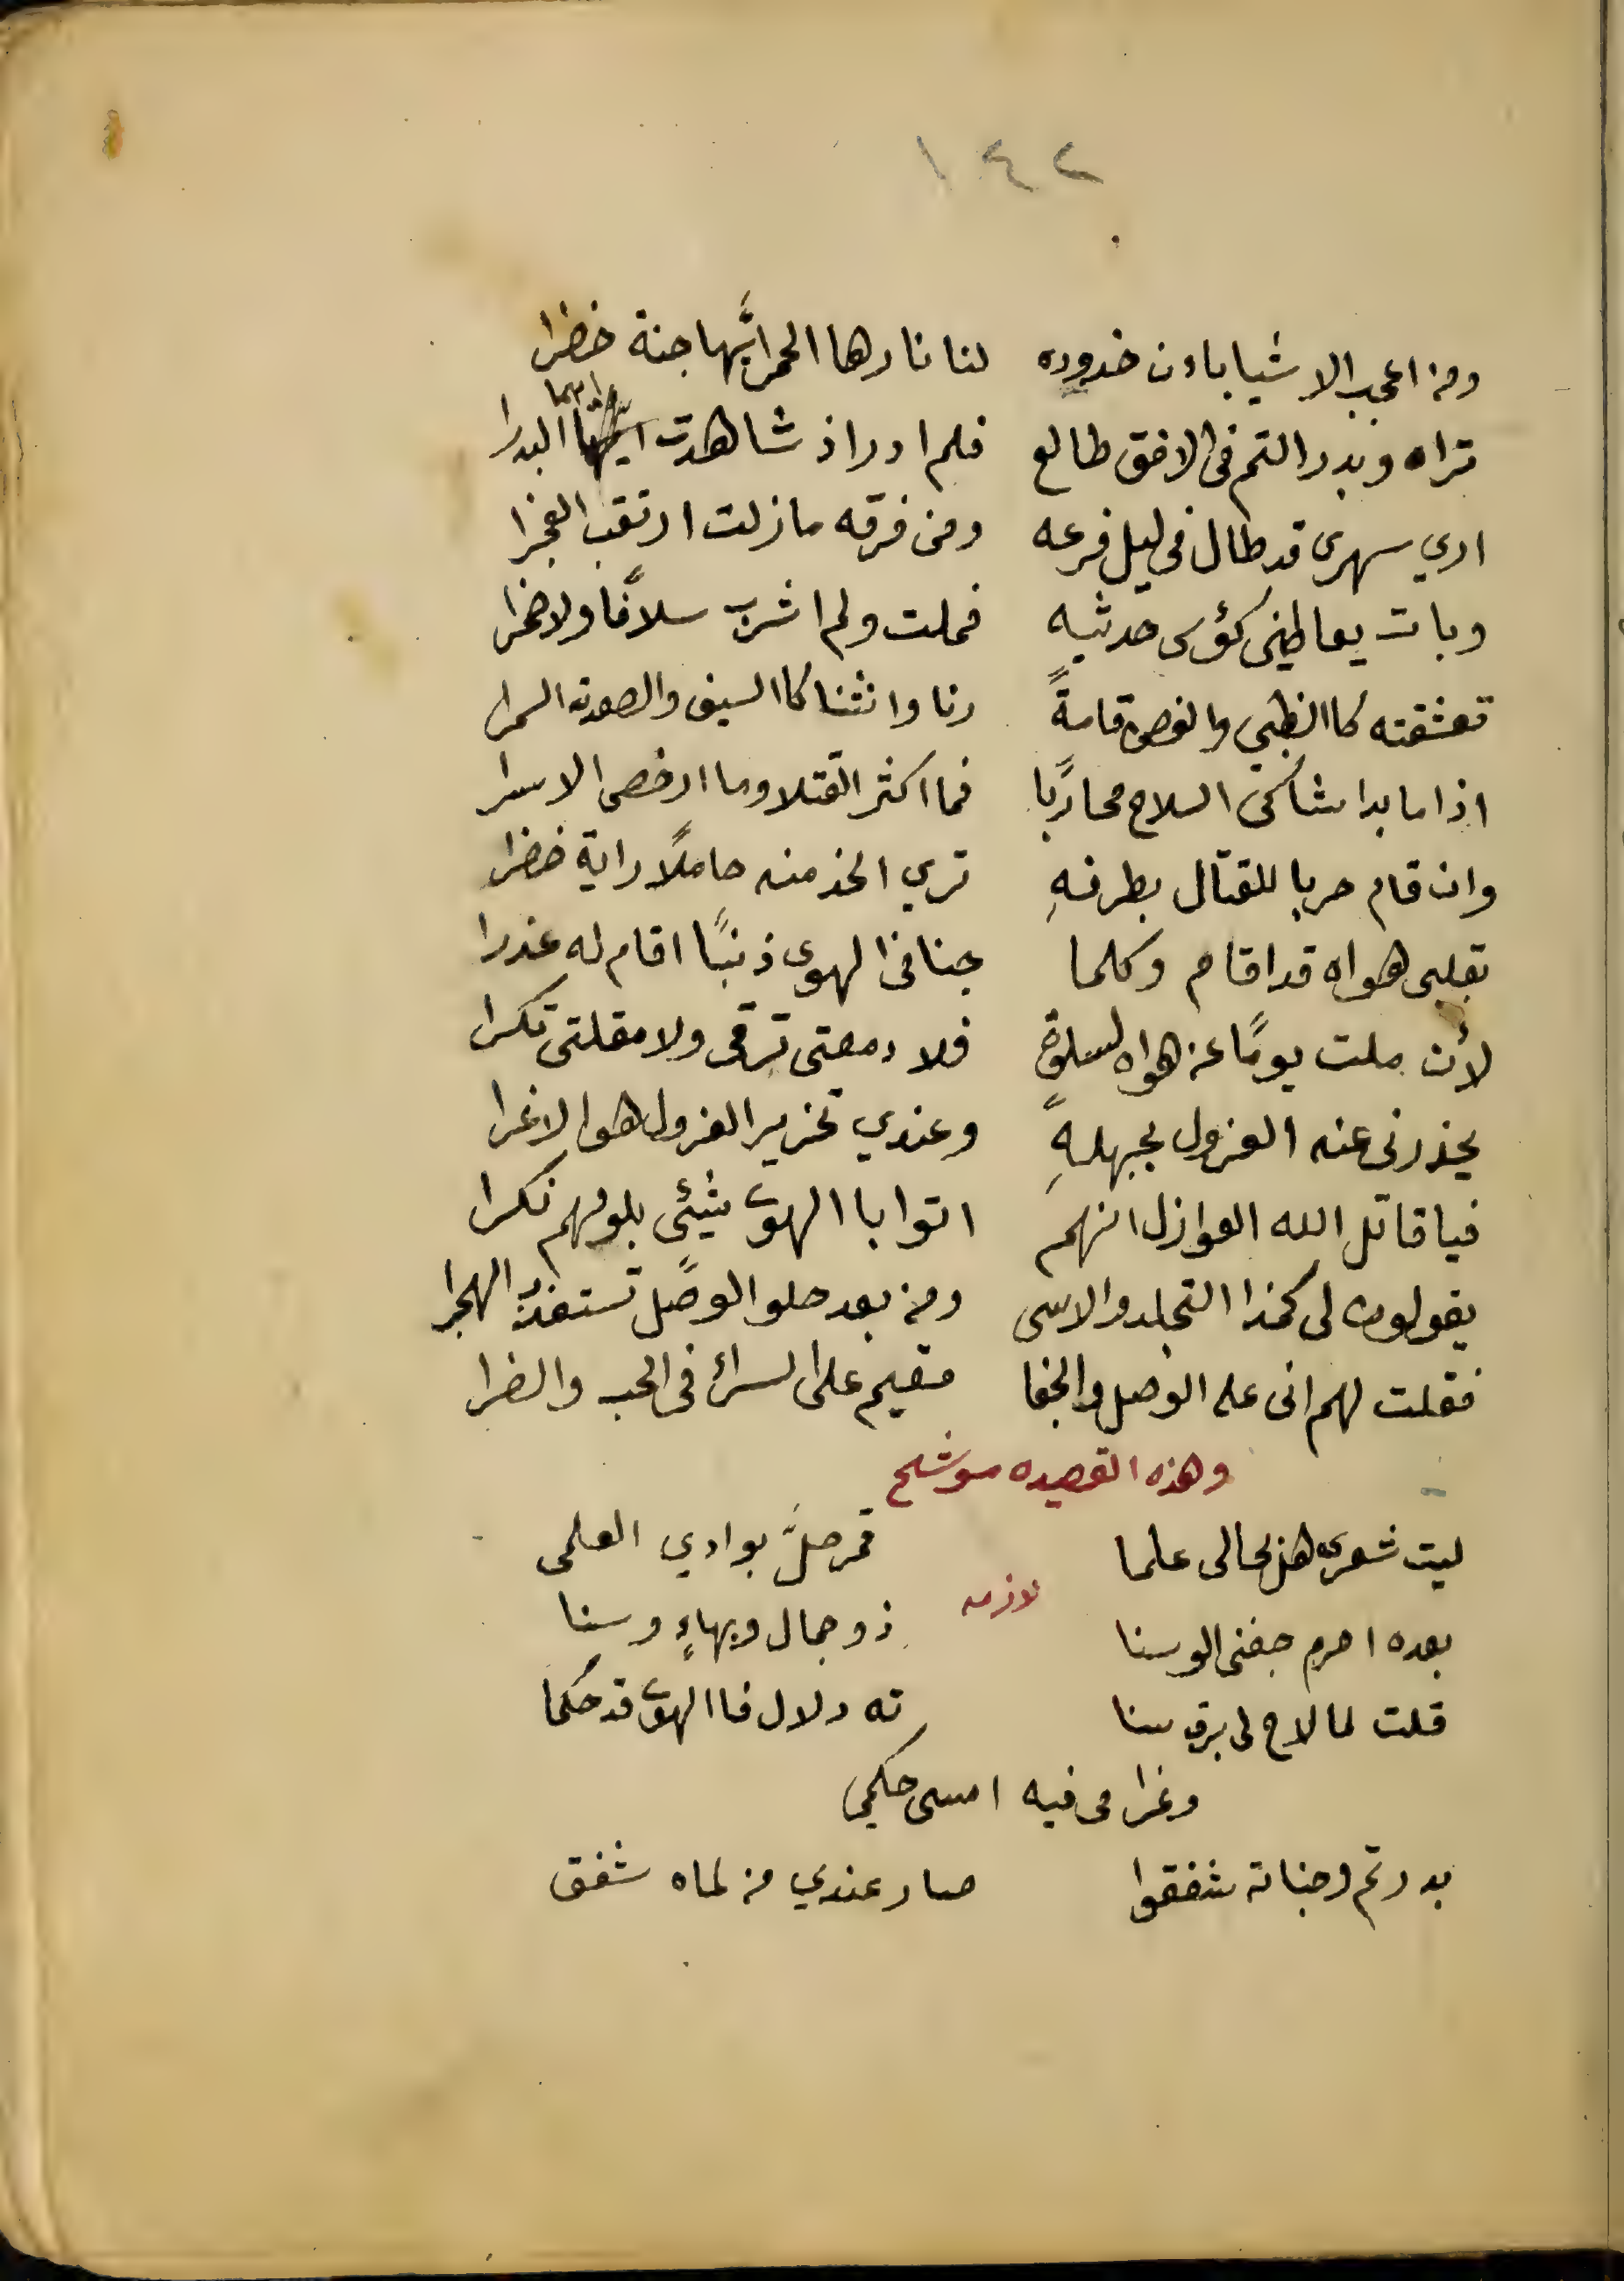 ١٤٢
ومن اعجب الاشيا بان خدوده لنا نارها الحمرا بها جنة خضرا
تراه وبدر التم في الافق طالع فلم ادر اذ شاهدت ايهما البدرا
اري سهرى قد طال فى ليل فرعه ومن فرقه ما زلت ارتقب الفجرا
وبات يعاطينى كؤس حديثه فملت ولم اشرب سلافًا ولا خمرا
تعشقته كا الظبي والغصن قامةً رنا وانثنا كا السيف والصعدة السمرا
اذا ما بدا شاكى السلاح محاربًا فما اكثر القتلا وما ارخص الاسرا
وان قام حربا للقتال بطرفهِ تري الخد منه حاملًا راية خضرا
بقلبى هواه قد اقام وكلما جنا فى الهوى ذنبًا اقام له عذرا
لأن ملت يومًا عن هواه لسلوةٍ فلا دمعتى ترقى ولا مقلتى تكرا
يحذرنى عنه العزول بجهلهِ وعندي تحزير العزول هو الاغرا
فيا قاتل الله العوازل انهم اتوا با الهوى شيئى بلومهم نكرا
يقولون لى كم ذا التجلد والاسى ومن بعد حلو الوصل تستعذب الهجرا
فقلت لهم انى على الوصل والجفا مقيم على السرائ فى الحب والضرا
وهذه القصيده موشح
ليت شعرى هل لحالى علما قمر حلَّ بوادي العلمى
لازمه
بعده احرم جفنى الوسنا ذو جمال وبهاءٍ وسنا
قلت لما لاح لى برق سنا ته دلال فا الهوى قد حكما
وغرامى فيه امسى حكمي
بدر تم وجناته شفقوا صار عندي من لماه شفق